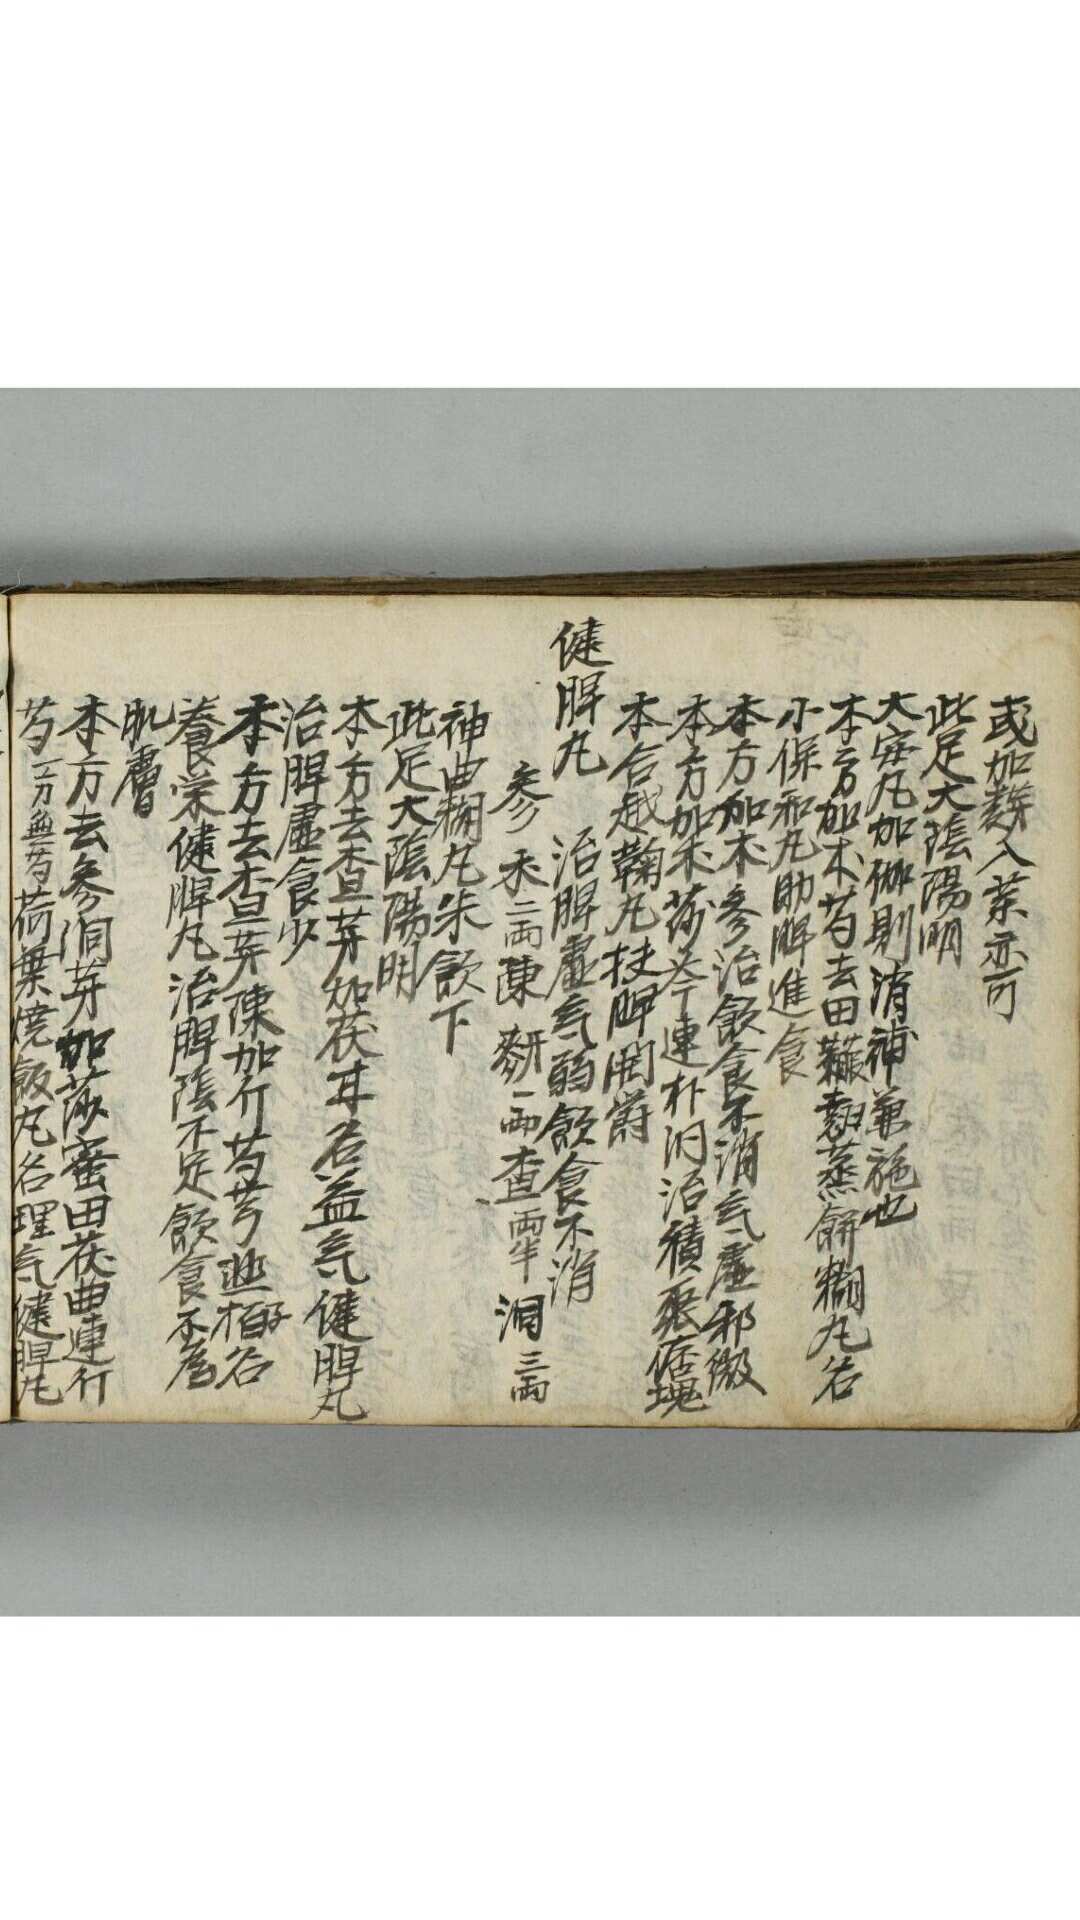 或加麰入药亦可
此足太陰陽明
大安丸加伽則消補兼施也
本方加术芍去田蘿麰蒸餅糊丸名
小保和丸助脾進食
本方加术參治飲食不消气虛邪微
本方加术莎芩連朴汋治積聚痞塊
本合越鞠丸扶脾開欝
健脾丸 治脾虛气弱飲食不消
參 术二兩陳 麰一兩查兩半 洞三兩
神曲糊丸米飲下
此足太陰陽明
本方去查芽加茯耳名益气健脾丸
治脾虛食少
本方去查芽陳加 芍芎 柏名
養荣健脾丸治脾陰不足飲食不為
肌膚
本方去參洞芽加莎蜜田茯曲連
芍 荷葉燒飯丸名理气健脾丸